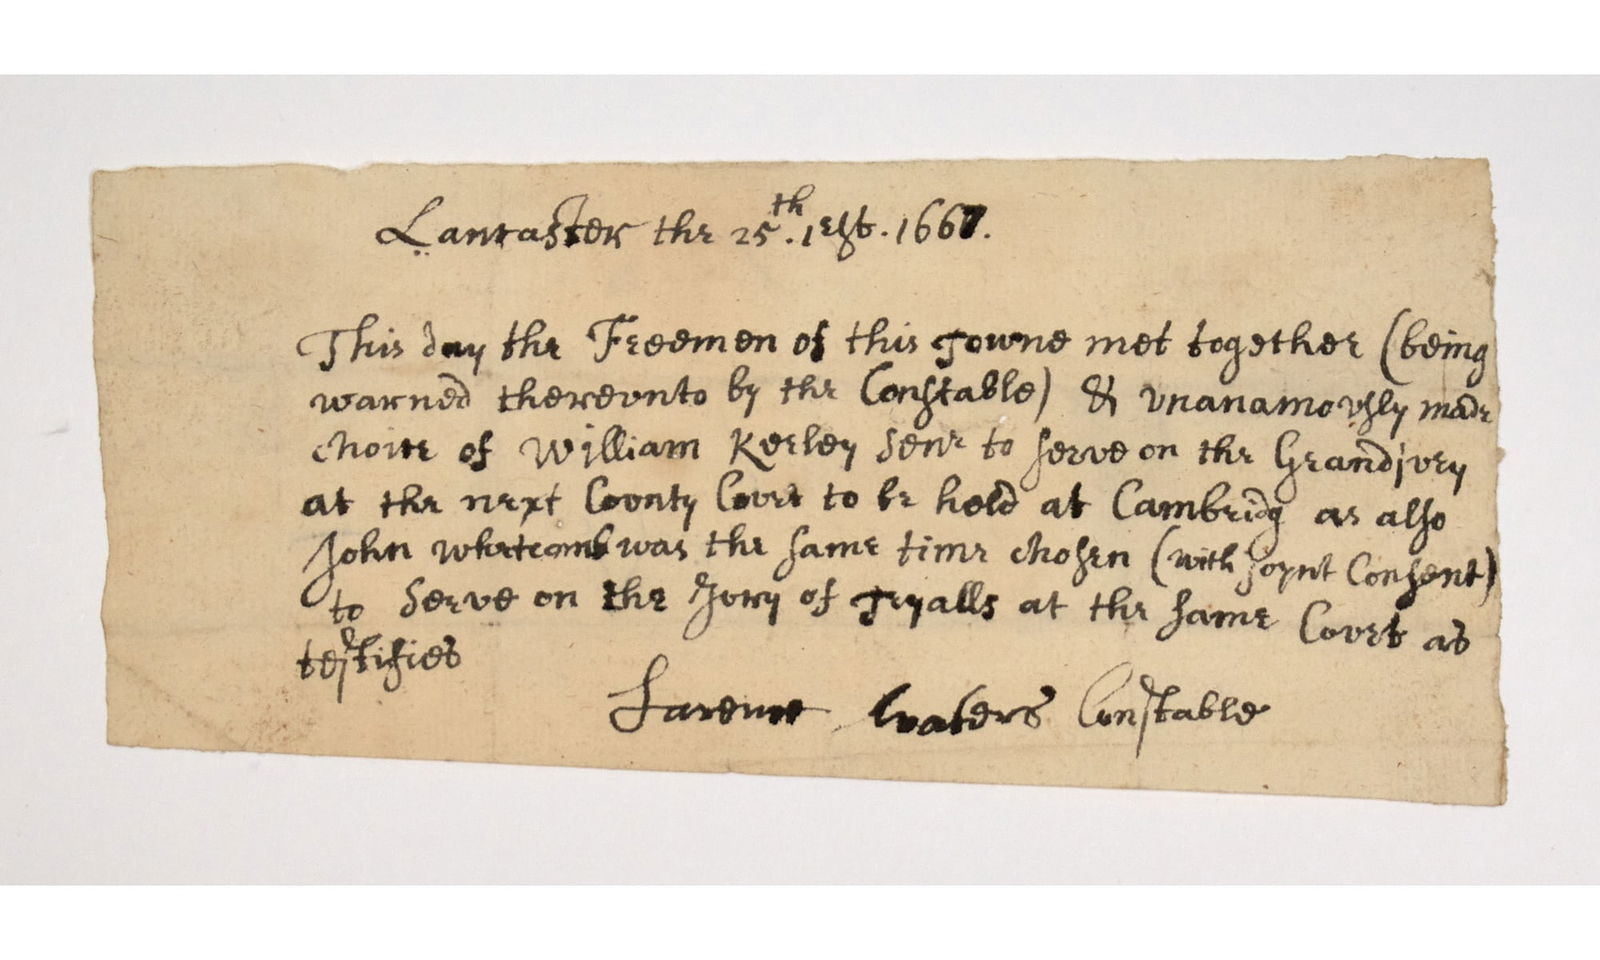 Lancaster the 25th. 1667.
This day the Freemen of this Towne met together (being
warned therevnto by the Constable) & vnanamovsly made
choice of William Kerley Senr to serve on the Grandjvry
at the next Covnty Covrt to be held at Cambridg as also
John Whetcomb was the same time chosen (with Joynt Consent)
to serve on the Jvry of Tryalls at the same Covrt as
testifies
Larence Waters Constable